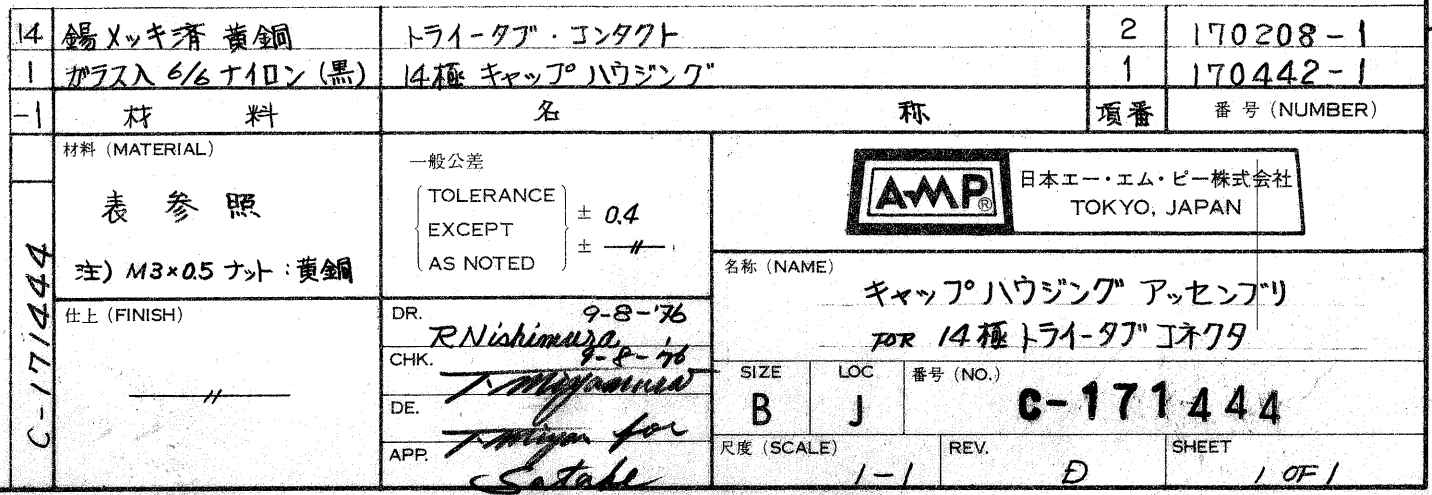 14 錫メッキ済 黄銅 トライータブ・コンタクト 2 170208-1
1 ガラス入 6/6 ナイロン (黒) 14極 キャップハウジング 1 170442-1
-1 材 料 名 称 項番 番 号 (NUMBER)
材料 (MATERIAL)
表 参 照
注) M3×0.5 ナット : 黄銅
仕上 (FINISH)
C-171444
一般公差
TOLERANCE
EXCEPT
AS NOTED
± 0.4
±
DR. 9-8-'76
R Nishimura
CHK. 9-8-'76
T. Miyamura
DE.
for
APP.
Satake
AMP®
日本エー・エム・ピー株式会社
TOKYO, JAPAN
名称 (NAME)
キャップハウジング アッセンブリ
FOR 14極トライータブコネクタ
SIZE
B
LOC
J
番号 (NO.)
C-171444
尺度 (SCALE)
1-1
REV.
D
SHEET
1 OF 1